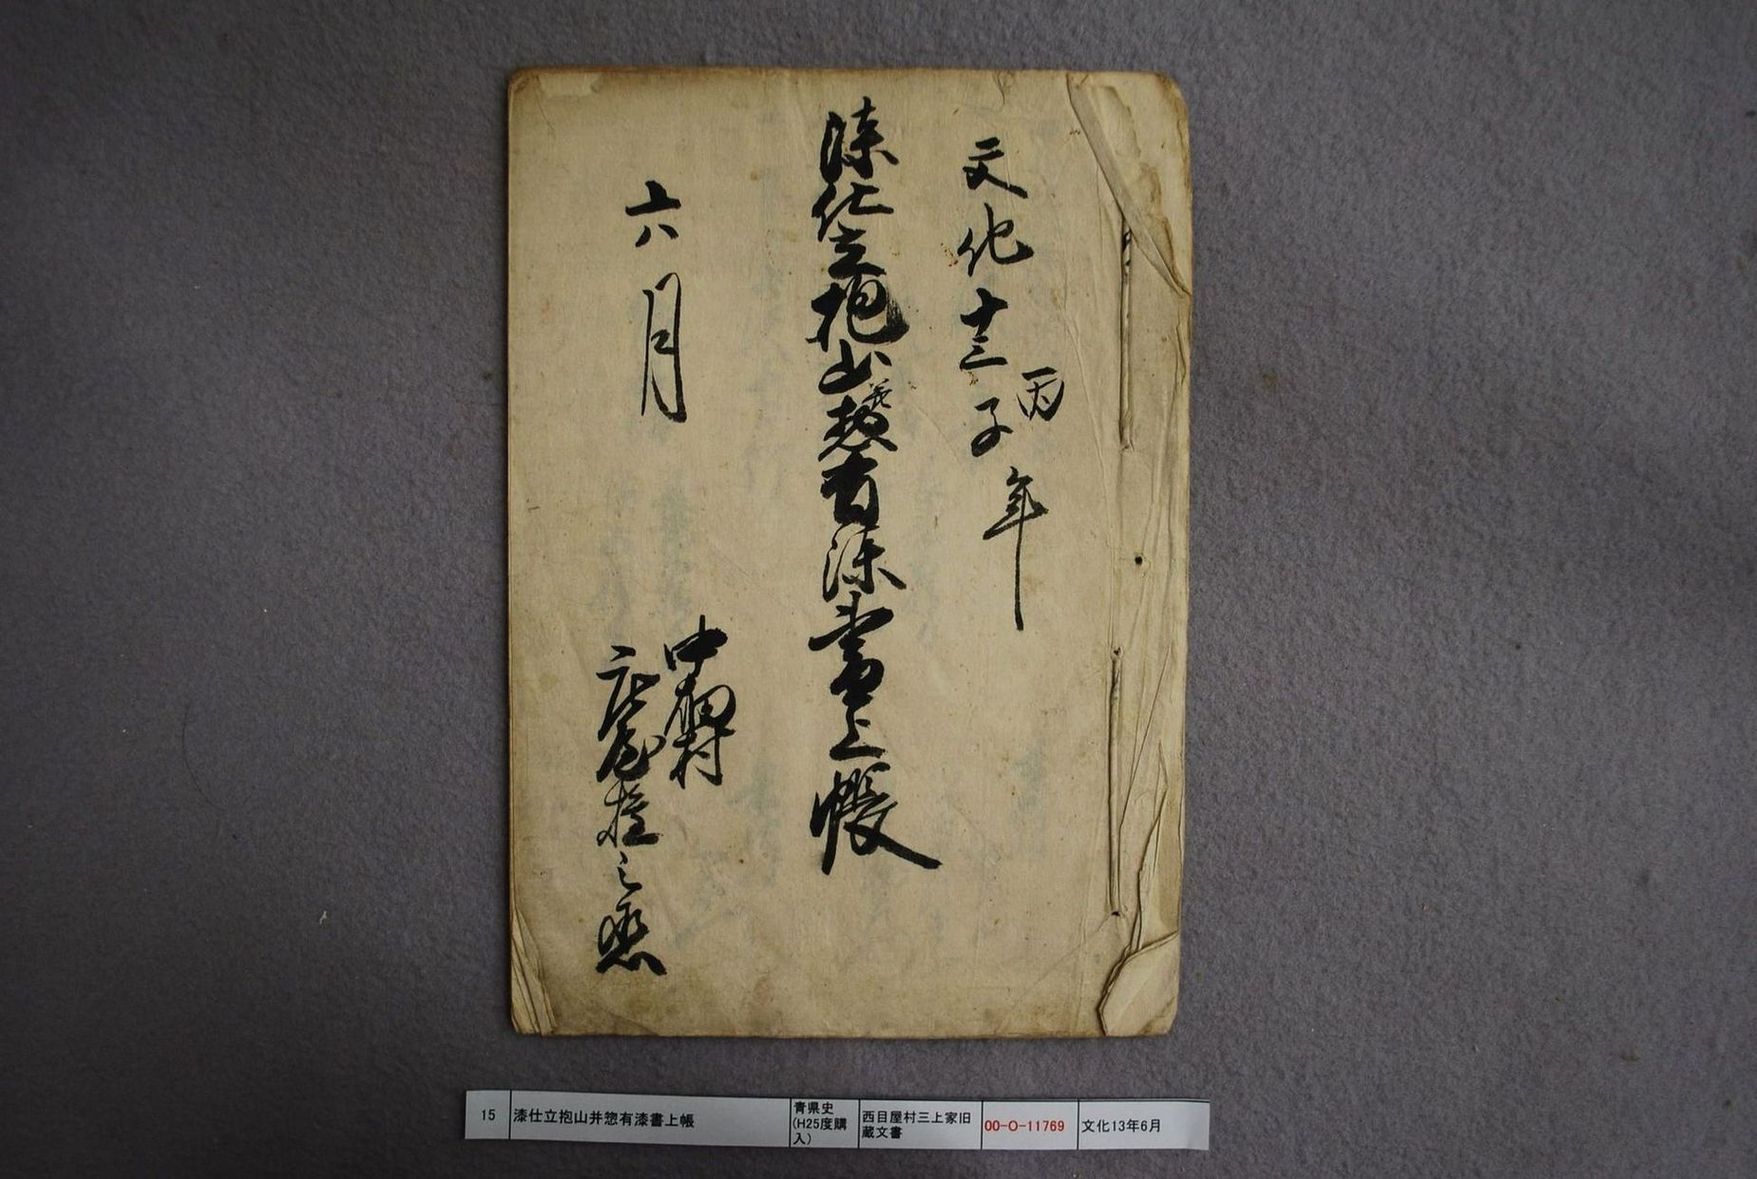 文化十三丙子年
漆仕立抱山并惣有漆書上帳
六月
中畑村
庄屋権之丞
15
漆仕立抱山并惣有漆書上帳
青県史
(H25度購
入)
西目屋村三上家旧
蔵文書
00-O-11769
文化13年6月